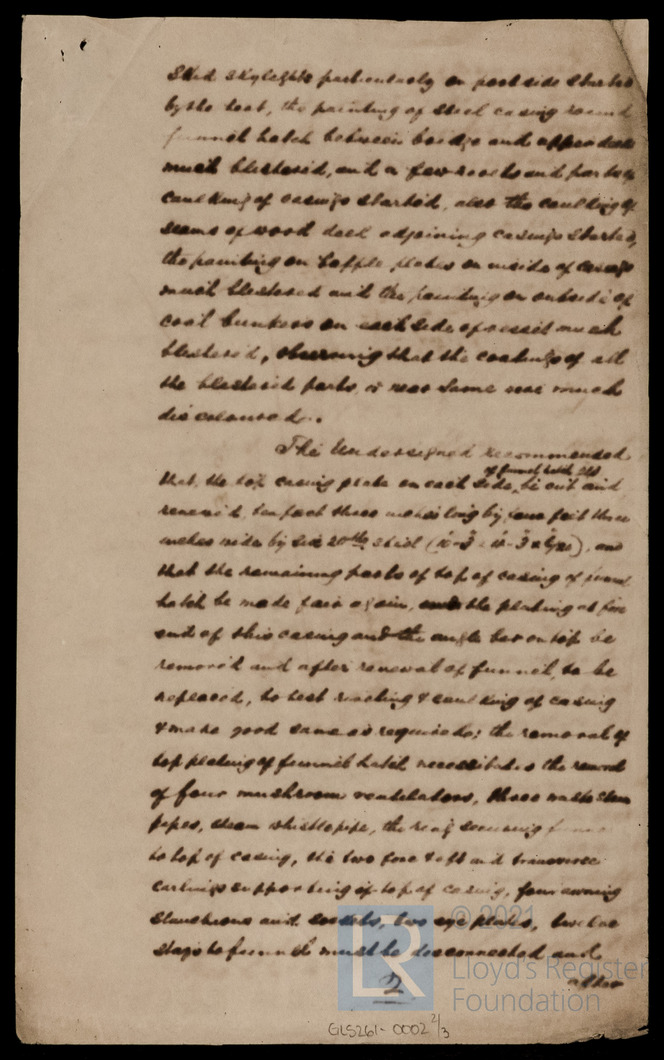 skylights particularly on port side started
by the heat, the painting of steel casing round
funnel hatch between bridge and
much blistered, and a few and parts of
caulking of casings started, also the caulking of
seams of wood deck adjoining casings started,
the painting on baffle plates on inside of casings
much blistered and the painting on outside of
coal bunkers on each side of vessel much
blistered, observing that the coatings of all
the blistered parts, or near same was much
discoloured.
The Undersigned recommended
of funnel hatch
that, the top casing plate on each side, be cut and
renewed, ten feet three inches long by four feet three
inches wide by six 20ths steel, and
that the remaining parts of top of casing of funnel
hatch be made fair again, the plating at fore
end of this casing and the angle bar on top be
removed and after renewal of funnel, to be
replaced, to test & caulking of casing
& make good same as required; the removal of
top plating of funnel hatch necessitates the removal
of four mushroom ventilators, three waste steam
pipes, steam whistle pipe, the securing
to top of casing, the two fore & aft and transverse
carlings supporting of top of casing, four awning
stanchions and sockets, two eye plates, twelve
stays to funnel must be disconnected and
after
2
GLS261-0002 2/3
© 2021
LR
Lloyd's Register
Foundation